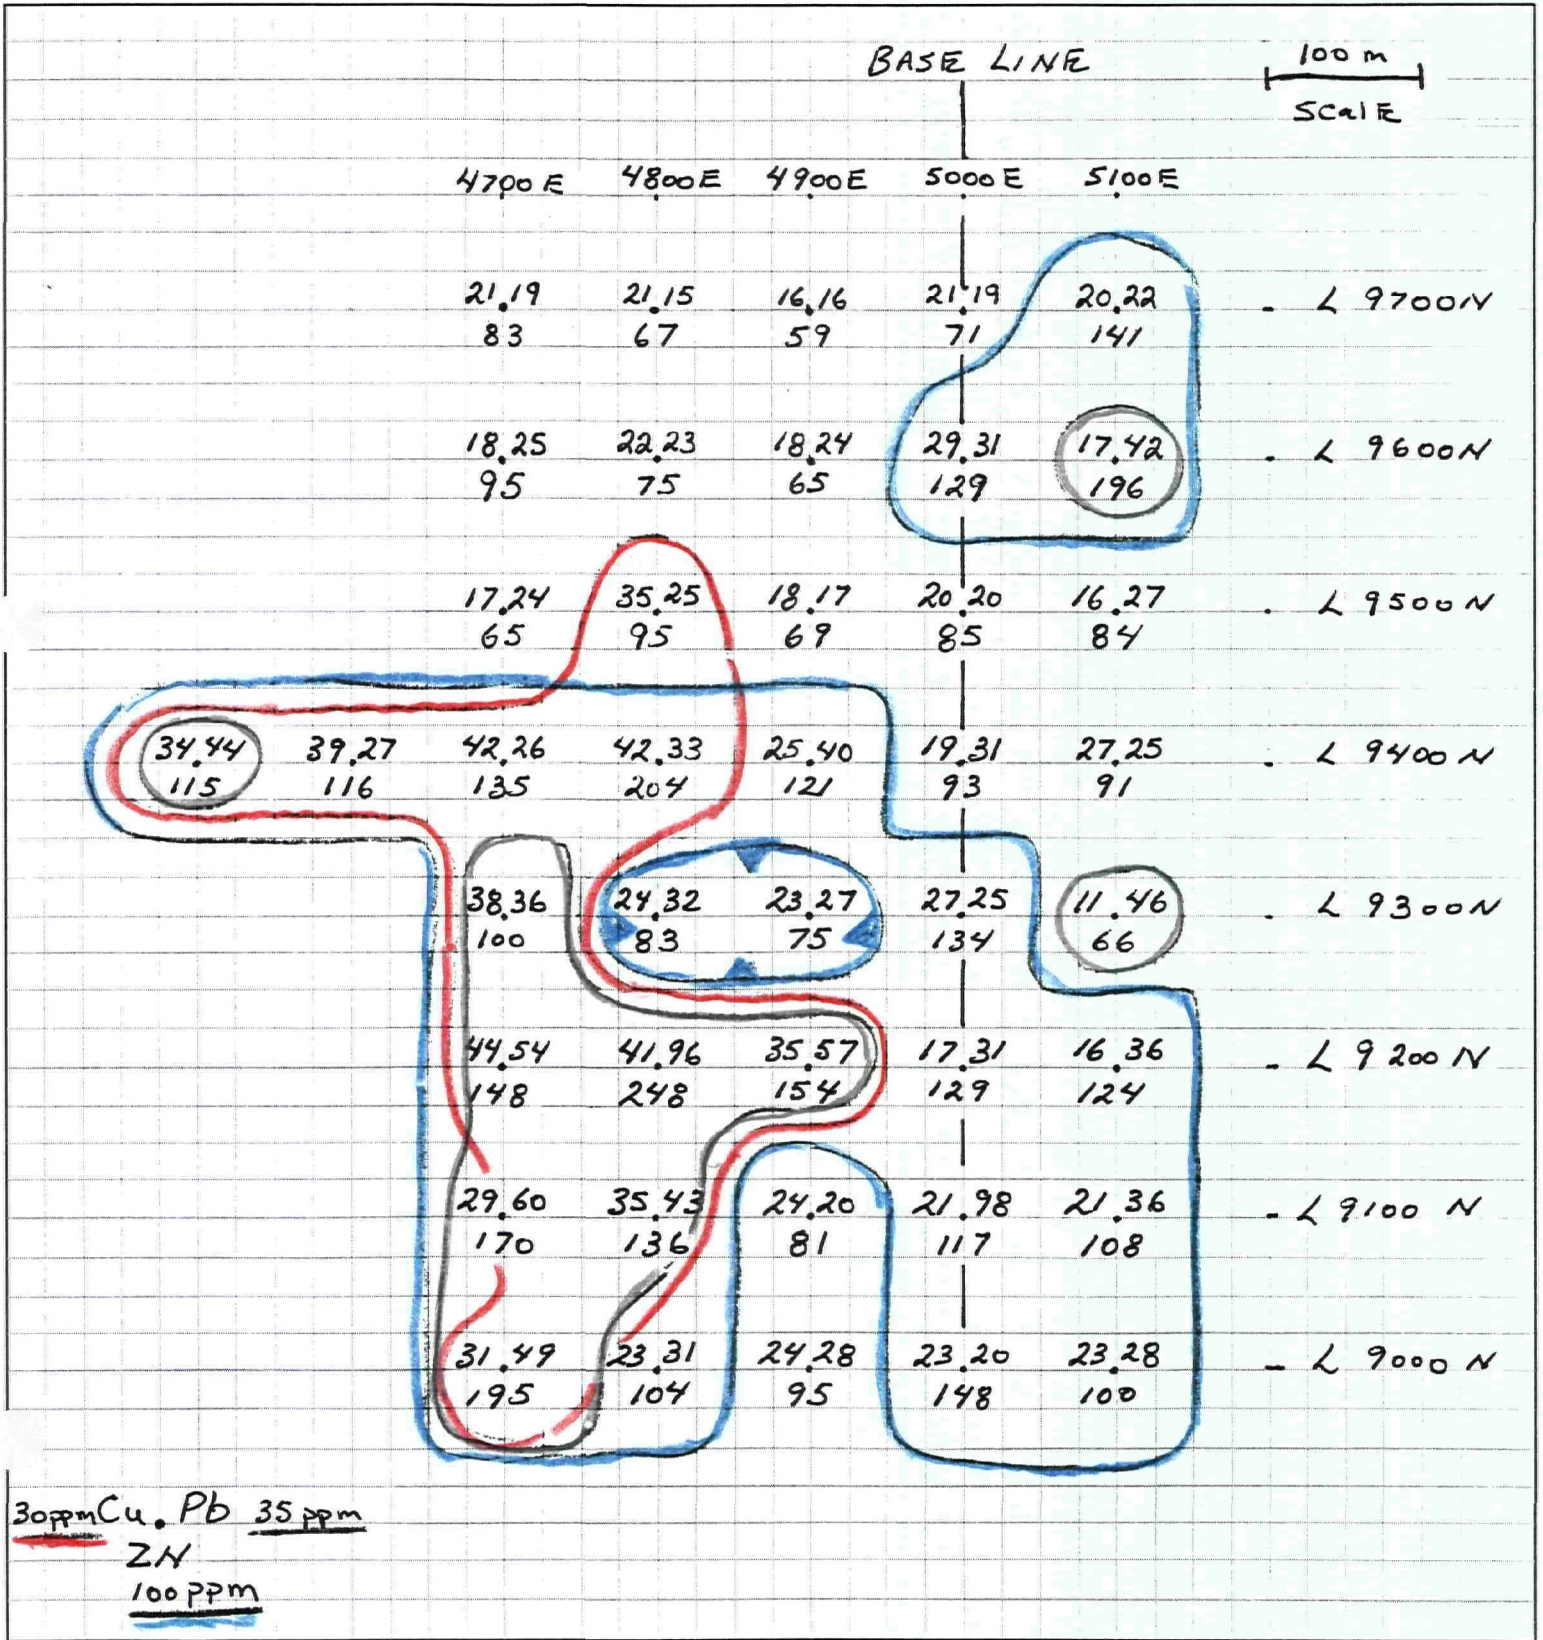 BASE LINE 100 m
SCALE
4700E 4800E 4900E 5000E 5100E
21.19 21.15 16.16 21.19 20.22 - L 9700N
83 67 59 71 141
18.25 22.23 18.24 29.31 17.42 . L 9600N
95 75 65 129 196
17.24 35.25 18.17 20.20 16.27 . L 9500N
65 95 69 85 84
34.44 39.27 42.26 42.33 25.40 19.31 27.25 . L 9400N
115 116 135 204 121 93 91
38.36 24.32 23.27 27.25 11.46 . L 9300N
100 83 75 134 66
44.54 41.96 35.57 17.31 16.36 - L 9200N
148 248 154 129 124
29.60 35.43 24.20 21.98 21.36 - L 9100 N
170 136 81 117 108
31.49 23.31 24.28 23.20 23.28 - L 9000N
195 104 95 148 100
30ppm Cu. Pb 35 ppm
ZN
100 ppm